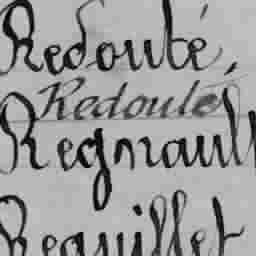 Redouté,
Redouté
Regnault
Requillet